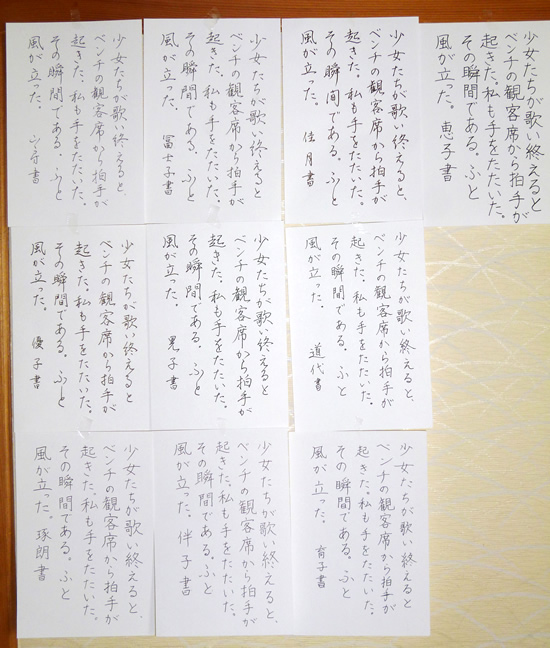 少女たちが歌い終えると
ベンチの観客席から拍手が
起きた。私も手をたたいた。
その瞬間である。ふと
風が立った。 恵子書
少女たちが歌い終えると、
ベンチの観客席から拍手が
起きた。私も手をたたいた。
その瞬間である。ふと
風が立った。 佳月書
少女たちが歌い終えると
ベンチの観客席から拍手が
起きた。私も手をたたいた。
その瞬間である。ふと
風が立った。 冨士子書
少女たちが歌い終えると、
ベンチの観客席から拍手が
起きた。私も手をたたいた。
その瞬間である。ふと
風が立った。 書
少女たちが歌い終えると、
ベンチの観客席から拍手が
起きた。私も手をたたいた。
その瞬間である。ふと
風が立った。 道代書
少女たちが歌い終えると
ベンチの観客席から拍手が
起きた。私も手をたたいた。
その瞬間である。ふと
風が立った。 晃子書
少女たちが歌い終えると
ベンチの観客席から拍手が
起きた。私も手をたたいた。
その瞬間である。ふと
風が立った。 優子書
少女たちが歌い終えると、
ベンチの観客席から拍手が
起きた。私も手をたたいた。
その瞬間である。ふと
風が立った。 育子書
少女たちが歌い終えると、
ベンチの観客席から拍手が
起きた。私も手をたたいた。
その瞬間である。ふと
風が立った。 伴子書
少女たちが歌い終えると、
ベンチの観客席から拍手が
起きた。私も手をたたいた。
その瞬間である。ふと
風が立った。 琢朗書